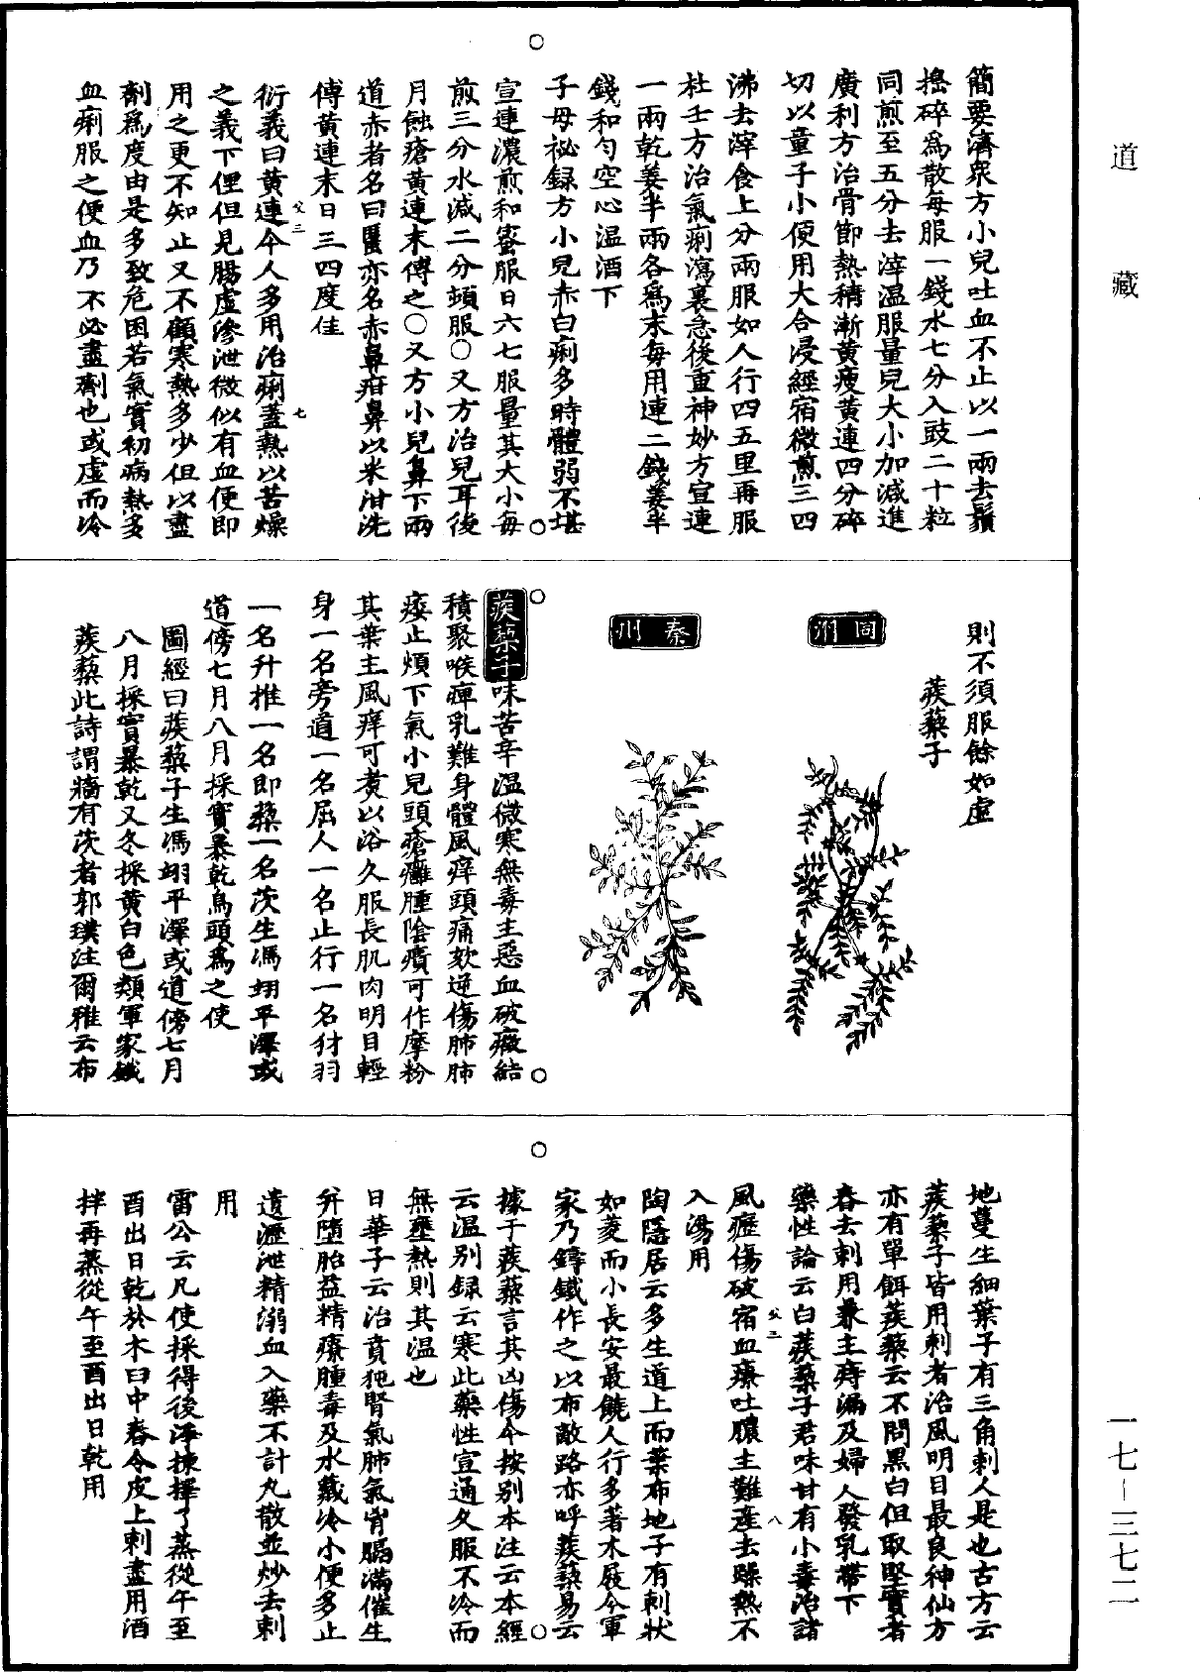 道藏
簡要濟衆方小兒吐血不止以一兩去鬚
搗碎爲散每服一錢水七分入豉二十粒
同煎至五分去滓温服量兒大小加減進
廣利方治骨節熱積漸黄瘦黄連四分碎
切以童子小便用大合浸經宿微煎三四
沸去滓食上分兩服如人行四五里再服
杜壬方治氣痢瀉裏急後重神妙方宣連
一兩乾姜半兩各爲末每用連二錢姜半
錢和匀空心温酒下
子母祕録方小兒赤白痢多時體弱不堪
宣連濃煎和蜜服日六七服量其大小每
煎三分水減二分頓服〇又方治兒耳後
月蝕瘡黄連末傅之〇又方小兒鼻下兩
道赤者名曰䘌亦名赤鼻疳鼻以米泔洗
傅黄連末日三四度佳
衍義曰黄連今人多用治痢蓋熱以苦燥
之義下俚但見腸虚滲泄微似有血便即
用之更不知止又不顧寒熱多少但以盡
劑爲度由是多致危困若氣實初病熱多
血痢服之便血乃不必盡劑也或虚而冷
父三
七
則不須服餘如虚
蒺蔾子
同州
秦州
蒺蔾子味苦辛温微寒無毒主惡血破癥結
積聚喉痺乳難身體風痒頭痛欬逆傷肺肺
痿止煩下氣小兒頭瘡癰腫陰㿉可作摩粉
其葉主風痒可煮以浴久服長肌肉明目輕
身一名旁通一名屈人一名止行一名犲羽
一名升推一名即蔾一名茨生馮翊平澤或
道傍七月八月採實暴乾烏頭爲之使
圖經曰蒺蔾子生馮翊平澤或道傍七月
八月採實暴乾又冬採黄白色類軍家鐵
蒺蔾此詩謂牆有茨者郭璞注爾雅云布
地蔓生細葉子有三角刺人是也古方云
蒺蔾子皆用刺者治風明目最良神仙方
亦有單餌蒺蔾云不問黑白但取堅實者
舂去刺用兼主痔漏及婦人發乳帶下
藥性論云白蒺蔾子君味甘有小毒治諸
風癧傷破宿血療吐膿主難産去躁熱不
入湯用
陶隱居云多生道上而葉布地子有刺狀
如菱而小長安最饒人行多著木屐今軍
家乃鑄鐵作之以布敵路亦呼蒺蔾易云
據于蒺蔾言其凶傷今按别本注云本經
云温别録云寒此藥性宣通久服不冷而
無壅熱則其温也
日華子云治賁㹠腎氣肺氣胷膈滿催生
并墮胎益精療腫毒及水藏冷小便多止
遺瀝泄精溺血入藥不計丸散並炒去刺
用
雷公云凡使採得後浄揀擇了蒸從午至
酉出日乾於木臼中舂令皮上刺盡用酒
拌再蒸從午至酉出日乾用
父三
八
一七－三七二